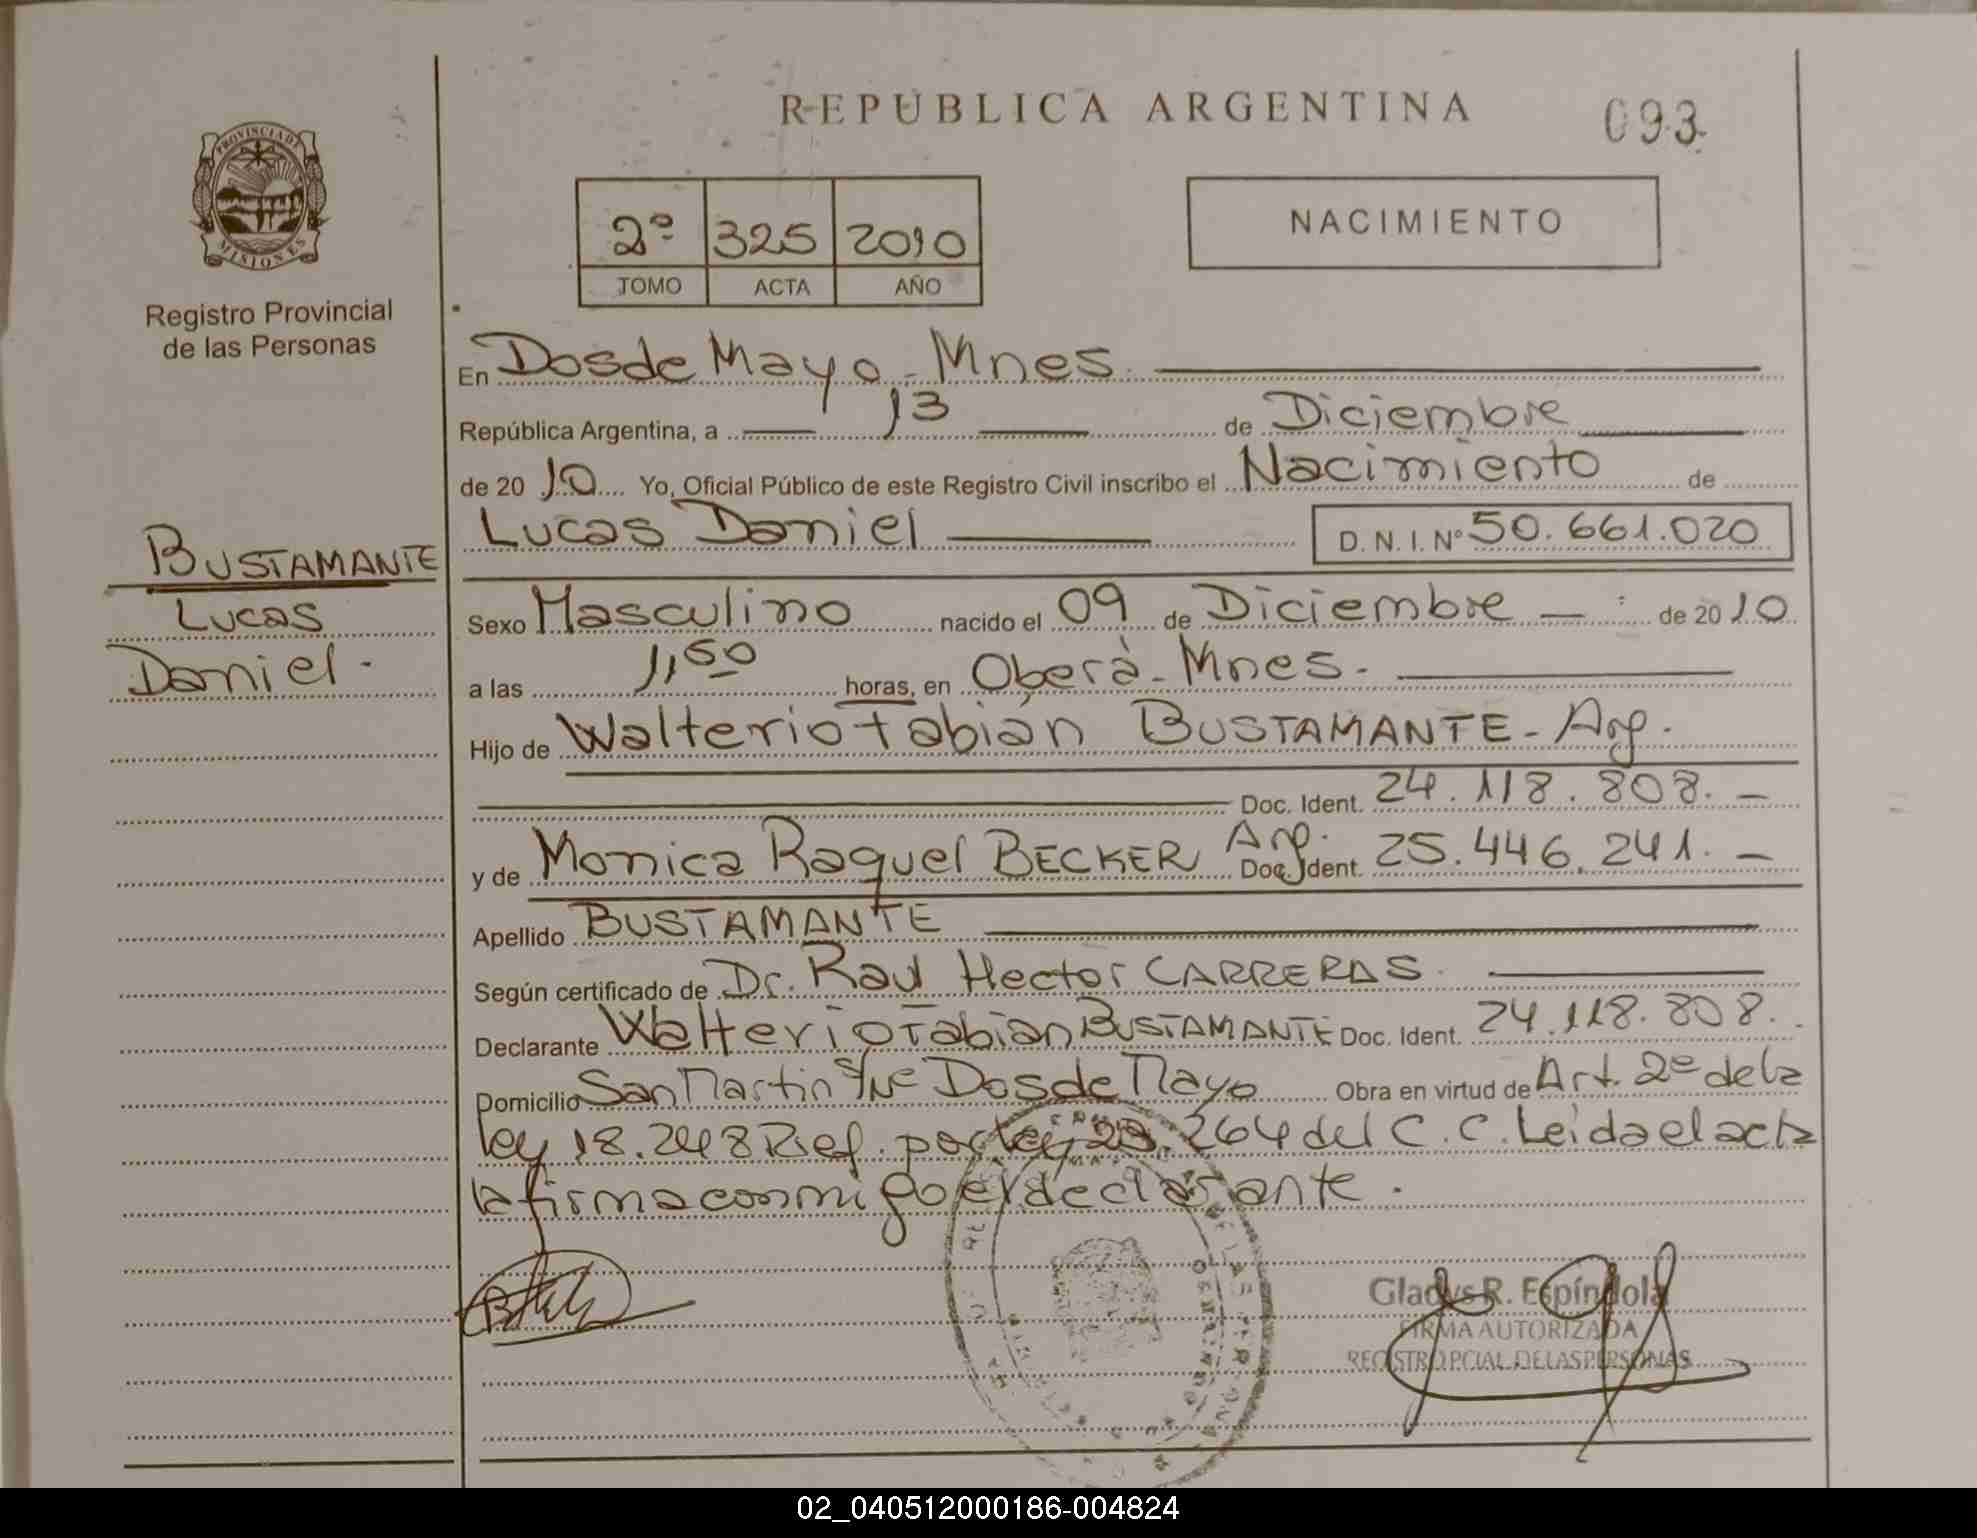 REPUBLICA ARGENTINA
093
PROVINCIA DE
MISIONES
Registro Provincial
de las Personas
2º 325 2010
TOMO ACTA AÑO
NACIMIENTO
En Dos de Mayo - Mnes.
República Argentina, a 13 de Diciembre
de 20 10 Yo, Oficial Público de este Registro Civil inscribo el Nacimiento de
Lucas Daniel D. N. I. Nº 50.661.020
BUSTAMANTE
Lucas
Daniel.
Sexo Masculino nacido el 09 de Diciembre de 20 10
a las 1,50 horas, en Oberá - Mnes.
Hijo de Walterio Fabián BUSTAMANTE - Arg.
Doc. Ident. 24.118.808.
y de Monica Raquel BECKER Arg. Doc. Ident. 25.446.241.
Apellido BUSTAMANTE
Según certificado de Dr. Raul Hector CARRERAS.
Declarante Walterio Fabián BUSTAMANTE Doc. Ident. 24.118.808.
Domicilio San Martin S/Nº Dos de Mayo Obra en virtud de Art. 2º de la
ley 18.248 Ref. por ley 23.264 del C.C. Leida el acta
la firma conmigo el declarante.
Gladys R. Espíndola
FIRMA AUTORIZADA
REGISTRO PCIAL. DE LAS PERSONAS
02_040512000186-004824